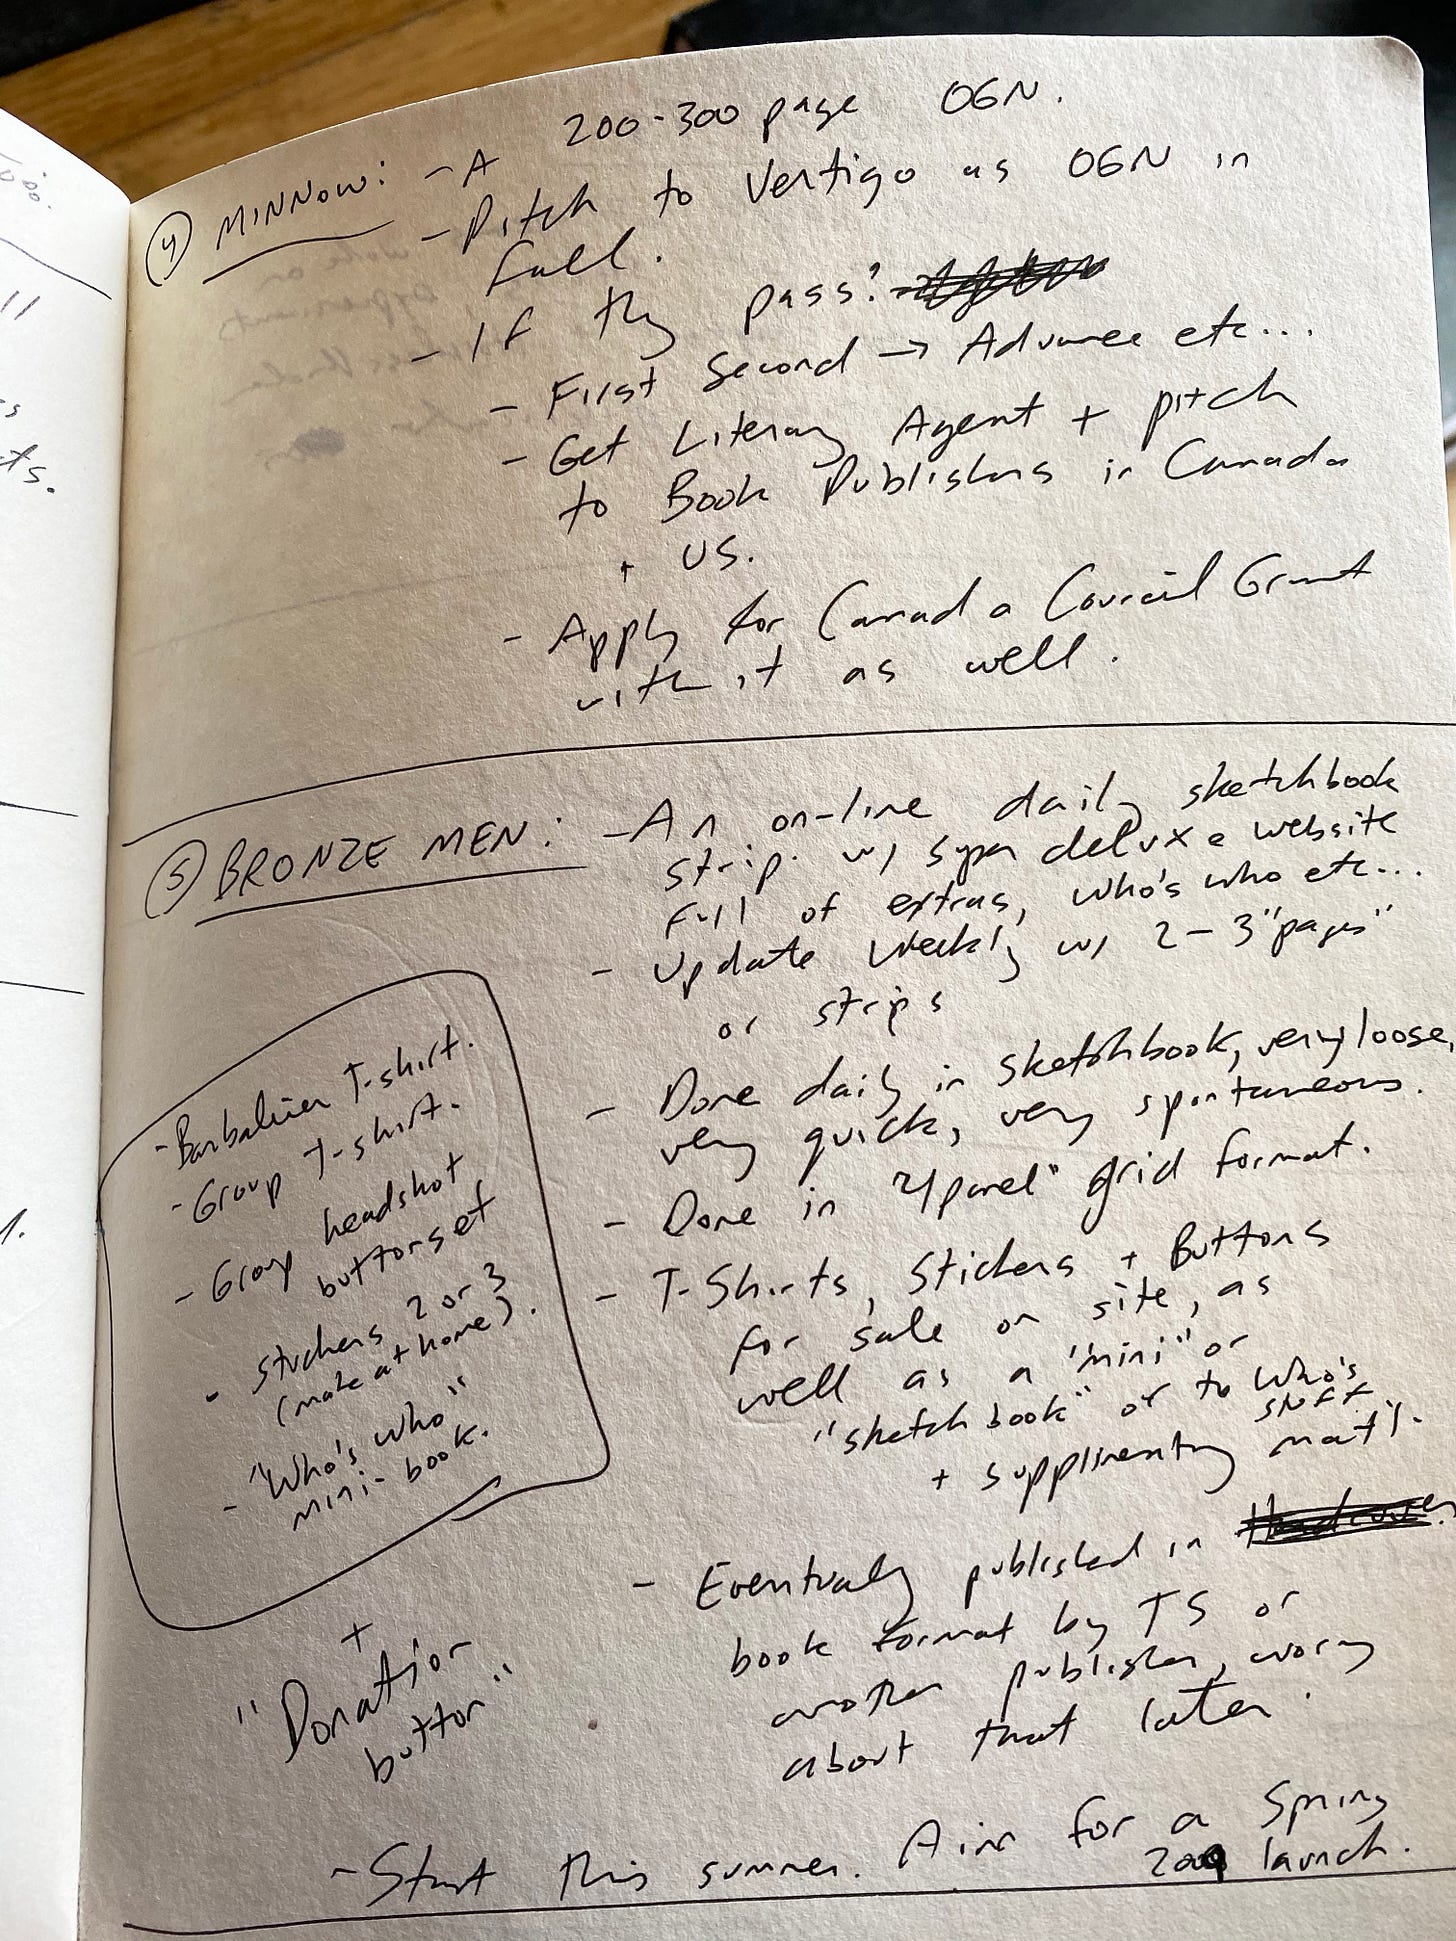 ④ MINNOW: - A 200-300 page OGN.
- Pitch to Vertigo as OGN in
fall.
- If they pass?
- First Second → Advance etc...
- Get Literary Agent + pitch
to Book Publishers in Canada
+ US.
- Apply for Canada Council Grant
with it as well.
⑤ BRONZE MEN: - An on-line daily sketchbook
strip. w/ super deluxe website
full of extras, who's who etc...
- Update weekly w/ 2-3 "pages"
or strips
- Done daily in sketchbook, very loose,
very quick, very spontaneous.
- Done in "4panel" grid format.
- T-Shirts, Stickers + Buttons
for sale on site, as
well as a "mini" or
"sketchbook" of to Who's
stuff
+ supplimentry mat'l.
- Eventually published in Hardcover
book format by TS or
another publisher, worry
about that later.
- Start this summer. Aim for a Spring
2009 launch.
- Barbalien T-shirt.
- Group T-shirt.
- Group headshot
button set
- Stickers 2 or 3
(make at home).
- "Who's who"
mini-book.
+
"Donation
button"